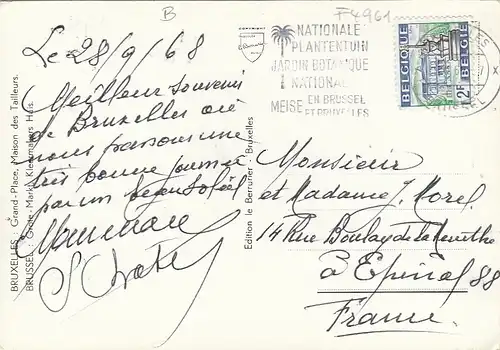 B
F4961
Le 28/9/68
Meilleur souvenir
de Bruxelles où
nous passons une
très bonne journée
par un beau soleil
NATIONALE
PLANTENTUIN
JARDIN BOTANIQUE
NATIONAL
MEISE EN BRUSSEL
ET BRUXELLES
BELGIQUE BELGIE
2F
BRUXELLES : Grand-Place, Maison des Tailleurs.
BRUSSEL : Grote-Markt, Kleermakers Huis.
Edition le Berrurier - Bruxelles
Monsieur
et Madame J. Morel
14 Rue Boulay de la Meurthe
à Epinal 88
France